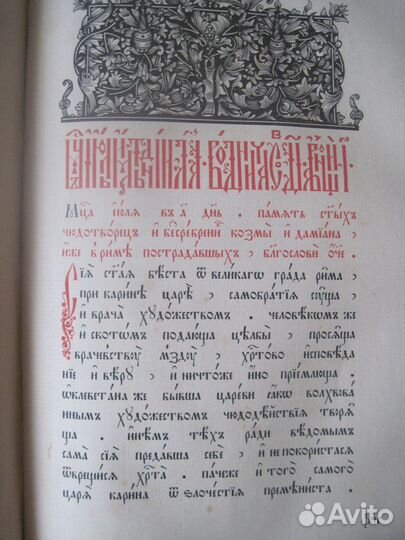 Мц҃а і҆ю́лѧ въ а҃ дн҃ь . па́мѧть ст҃ы́хъ
чюдотво́рецъ и҆ бесре́бреникъ козмы̀ и҆ дамїа́на ,
и҆́же в ри́мѣ пострада́вшихъ , бл҃гословѝ ѻ҆́ч҃е .
Сїѧ̑ ст҃а́ѧ бѣ́ста ѿ вели́кагѡ гра́да ри́ма ,
при кари́нѣ царѣ̀ , самобра́тїѧ сꙋ́ща ,
и҆ врача̀ хꙋдо́жествомъ . человѣ́комъ же
и҆ ското́мъ подаю́ща цѣльбы̀ , просѧ́ща
враче́вствꙋ мздꙋ̀ , хр҃то́во и҆сповѣ́да
нїе и҆ вѣ́рꙋ , и҆ ничто́же и҆́но прїе́млюща .
ѡ҆клевета́на же бы́вша царе́ви ꙗ҆́кѡ волхво́ва
ннымъ хꙋдо́жествомъ чюдодѣ́йствїѧ творѧ́
ща . и҆не́мъ тѣ́хъ ра́ди вѣ́домымъ
сама̀ сїѧ̑ преда́вша себѐ , и҆ не покори́стасѧ
ѿврещи́сѧ хр҃та̀ . па́чеже и҆ того̀ самого̀
царѧ̀ кари́на ѿ ѕлоче́стїѧ премѣни́ста .
Avito